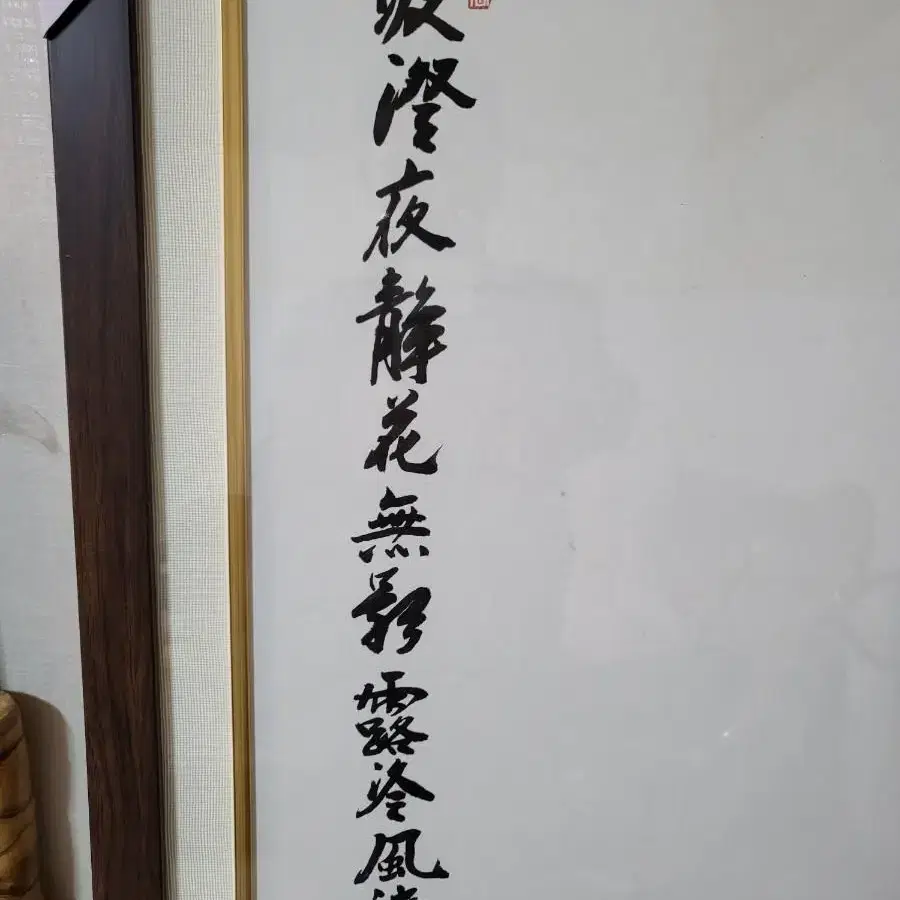 澄夜靜花無影露冷風